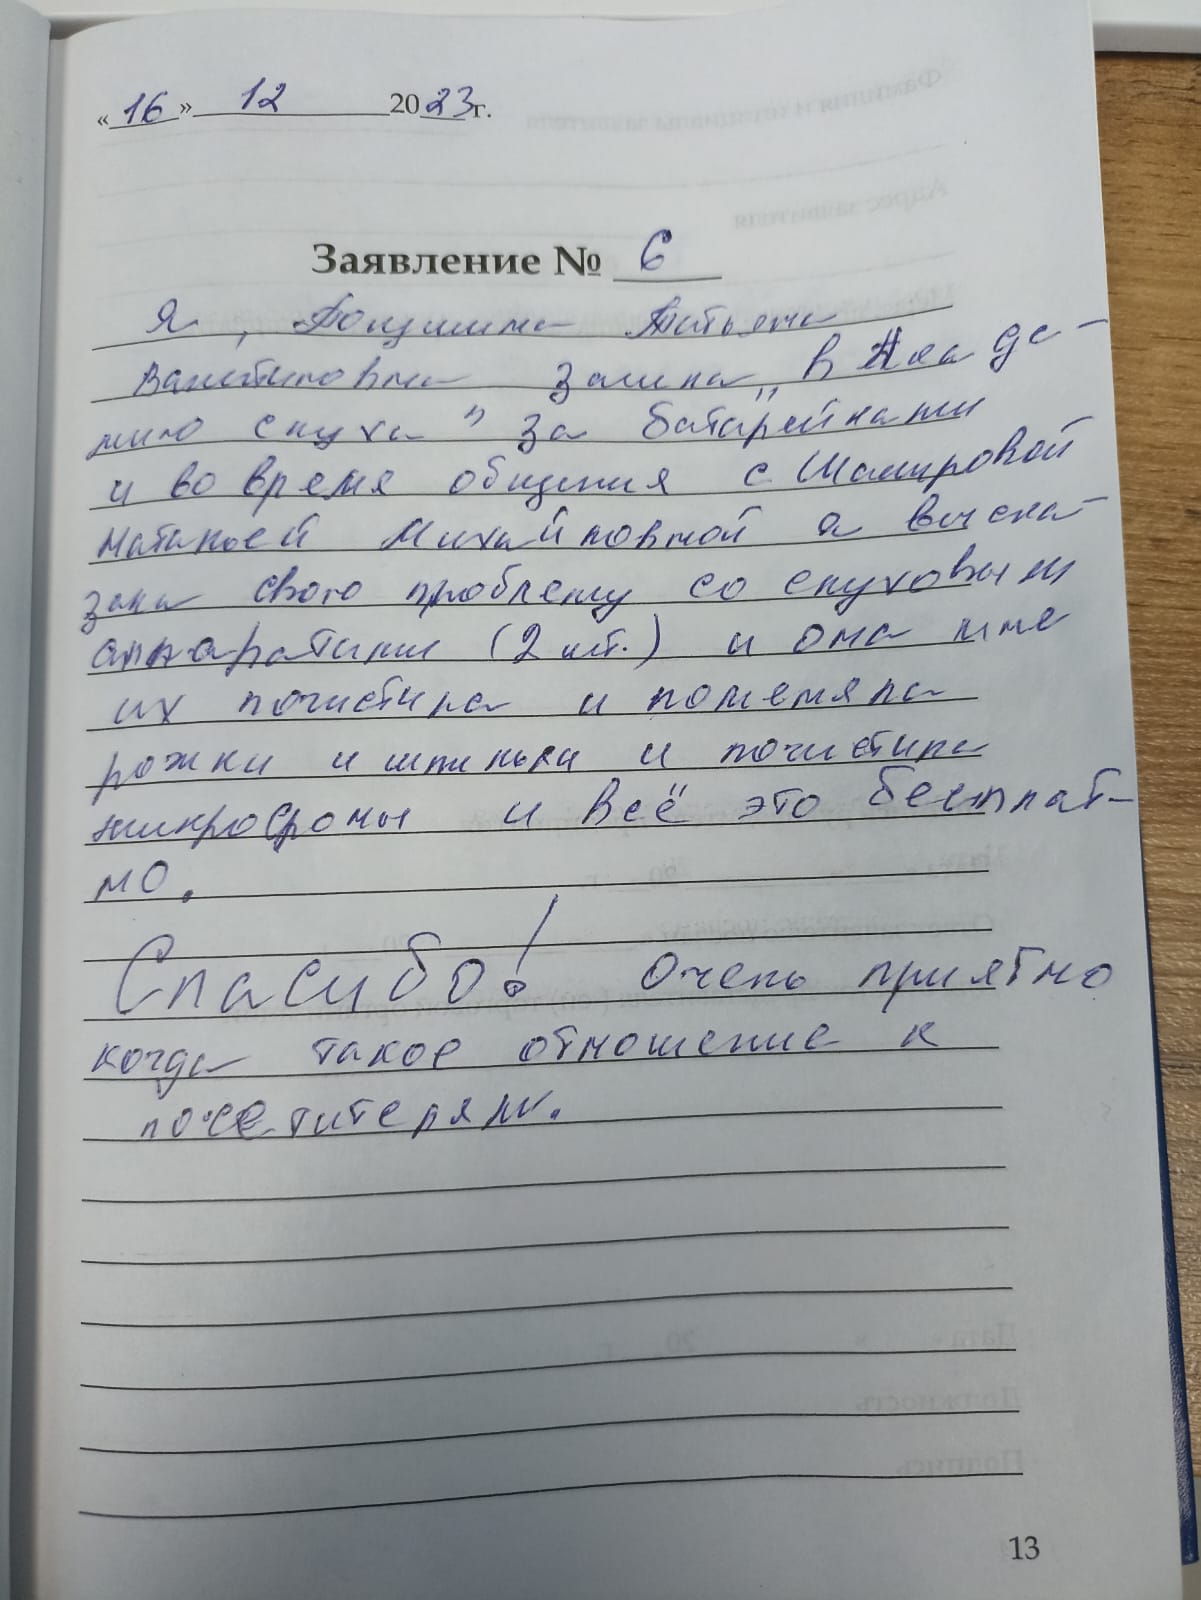 «16» 12 2023г.
Заявление № 6
Я, Татьяна
Валентиновна зашла в "Акаде-
мию слуха" за батарейками
и во время общения с Шамировой
Натальей Михайловной я выска-
зала свою проблему со слуховыми
аппаратами (2 шт.) и она мне
их почистила и поменяла
рожки и шпильки и почистила
микрофоны и всё это бесплат-
но.
Спасибо! Очень приятно
когда такое отношение к
посетителям.
13